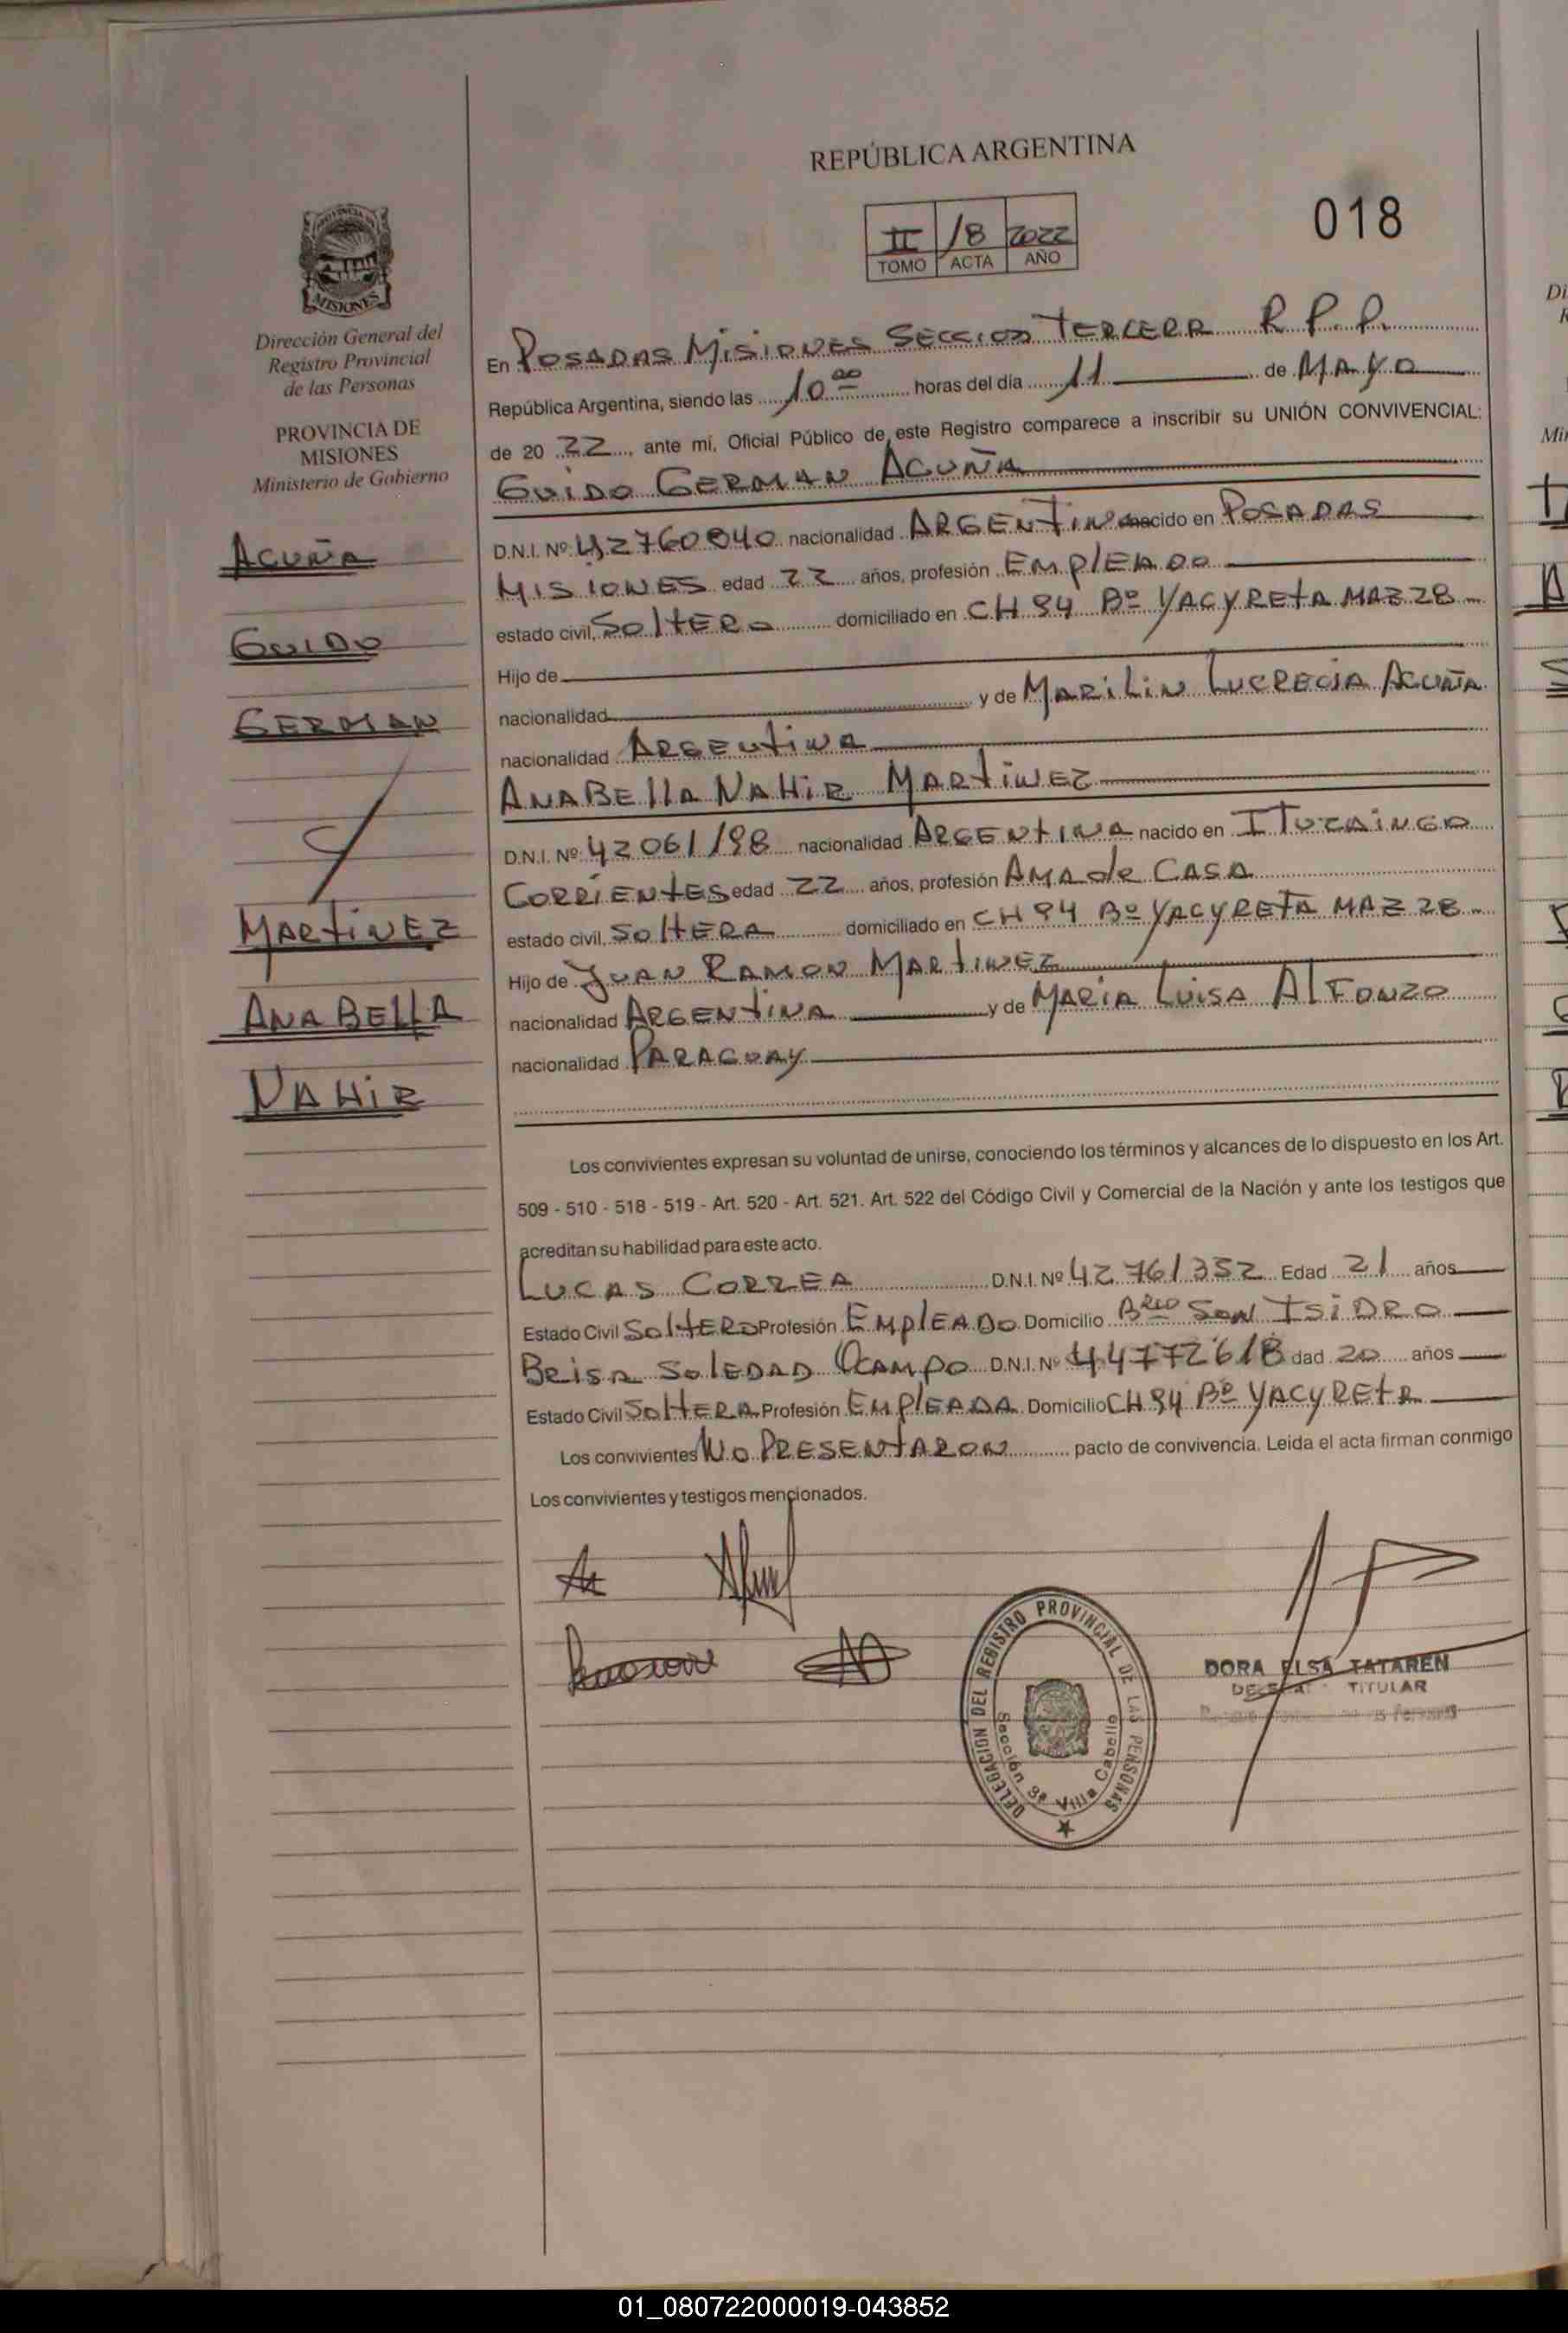 REPÚBLICA ARGENTINA
018
II /8 2022
TOMO ACTA AÑO
PROVINCIA DE
MISIONES
Dirección General del
Registro Provincial
de las Personas
PROVINCIA DE
MISIONES
Ministerio de Gobierno
ACUÑA
GUIDO
GERMAN
Y
MARTINEZ
ANABELLA
NAHIR
En POSADAS MISIONES SECCION TERCERA R P. P.
República Argentina, siendo las 10 00 horas del día 11 de MAYO
de 20 22, ante mí, Oficial Público de este Registro comparece a inscribir su UNIÓN CONVIVENCIAL:
GUIDO GERMAN ACUÑA
D.N.I. Nº 42760840 nacionalidad ARGENTINA nacido en POSADAS
MISIONES edad 22 años, profesión EMPLEADO
estado civil, SOLTERO domiciliado en CH 94 Bº YACYRETA MAZ 28
Hijo de
nacionalidad y de MARILIN LUCRECIA ACUÑA
nacionalidad ARGENTINA
ANABELLA NAHIR MARTINEZ
D.N.I. Nº 42061198 nacionalidad ARGENTINA nacido en ITUZAINGO
CORRIENTES edad 22 años, profesión AMA de CASA
estado civil, SOLTERA domiciliado en CH 94 Bº YACYRETA MAZ 28
Hijo de JUAN RAMON MARTINEZ
nacionalidad ARGENTINA y de MARIA LUISA ALFONZO
nacionalidad PARAGUAY
Los convivientes expresan su voluntad de unirse, conociendo los términos y alcances de lo dispuesto en los Art.
509 - 510 - 518 - 519 - Art. 520 - Art. 521. Art. 522 del Código Civil y Comercial de la Nación y ante los testigos que
acreditan su habilidad para este acto.
LUCAS CORREA D.N.I. Nº 42 761352 Edad 21 años
Estado Civil SOLTERO Profesión EMPLEADO Domicilio Brio SAN ISIDRO
BRISA SOLEDAD OCAMPO D.N.I. Nº 44772618 dad 20 años
Estado Civil SOLTERA Profesión EMPLEADA Domicilio CH 94 Bº YACYRETA
Los convivientes NO PRESENTARON pacto de convivencia. Leida el acta firman conmigo
Los convivientes y testigos mencionados.
DELEGACION DEL REGISTRO PROVINCIAL DE LAS PERSONAS
Sección 3ª Villa Cabello
DORA ELSA TATAREN
TITULAR
01_080722000019-043852